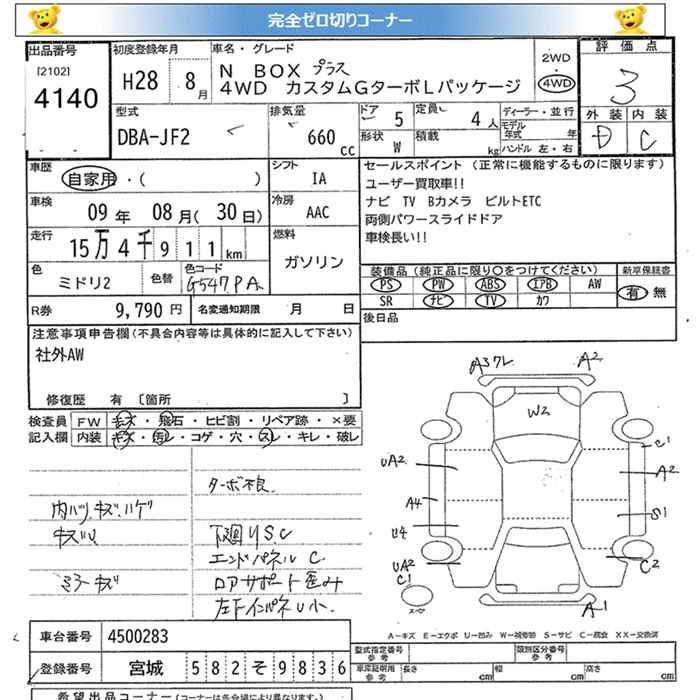 完全ゼロ切りコーナー
出品番号
[2102]
4140
初度登録年月
H28 8月
車名・グレード
N BOX プラス
4WD カスタムGターボLパッケージ
2WD
4WD
評価点
3
外装 内装
D C
型式
DBA-JF2
排気量
660 cc
ドア 5
形状 W
定員 4人
積載 kg
ディーラー・並行
モデル年式 年
ハンドル 左・右
車歴
自家用・( )
車検
09年 08月(30日)
走行
15万4千911km
色
ミドリ2
色替
色コード
G547PA
シフト
IA
冷房
AAC
燃料
ガソリン
セールスポイント(正常に機能するものに限ります)
ユーザー買取車!!
ナビ TV Bカメラ ビルトETC
両側パワースライドドア
車検長い!!
装備品(純正品に限り○をつけてください)
PS PW ABS エアB AW
SR ナビ TV カワ
新車保証書
有 無
R券 9,790円
名変通知期限 月 日
後日品
注意事項申告欄(不具合内容等は具体的に記入して下さい)
社外AW
修復歴 有 〔箇所 〕
検査員記入欄
FW キズ・飛石・ヒビ割・リペア跡・×要
内装 キズ・汚レ・コゲ・穴・スレ・キレ・破レ
ターボ不良
内ハリキズ、ハゲ
キズ
下廻りS.C
エンドパネルC
ミラーキズ
ロアサポート歪み
左F インパネU小
A3ワレ
A2
W2
UA2
C1
A2
A4
S1
U4
UA2
C1
C2
A1
スペア
A-キズ E-エクボ U-凹み W-補修跡 S-サビ C-腐食 XX-交換済
車台番号 4500283
登録番号 宮城 582そ9836
型式指定番号 参考
類別区分番号 参考
車庫証明用 参考 長さ cm 幅 cm 高さ cm
希望出品コーナー(コーナーは各会場により異なります。)